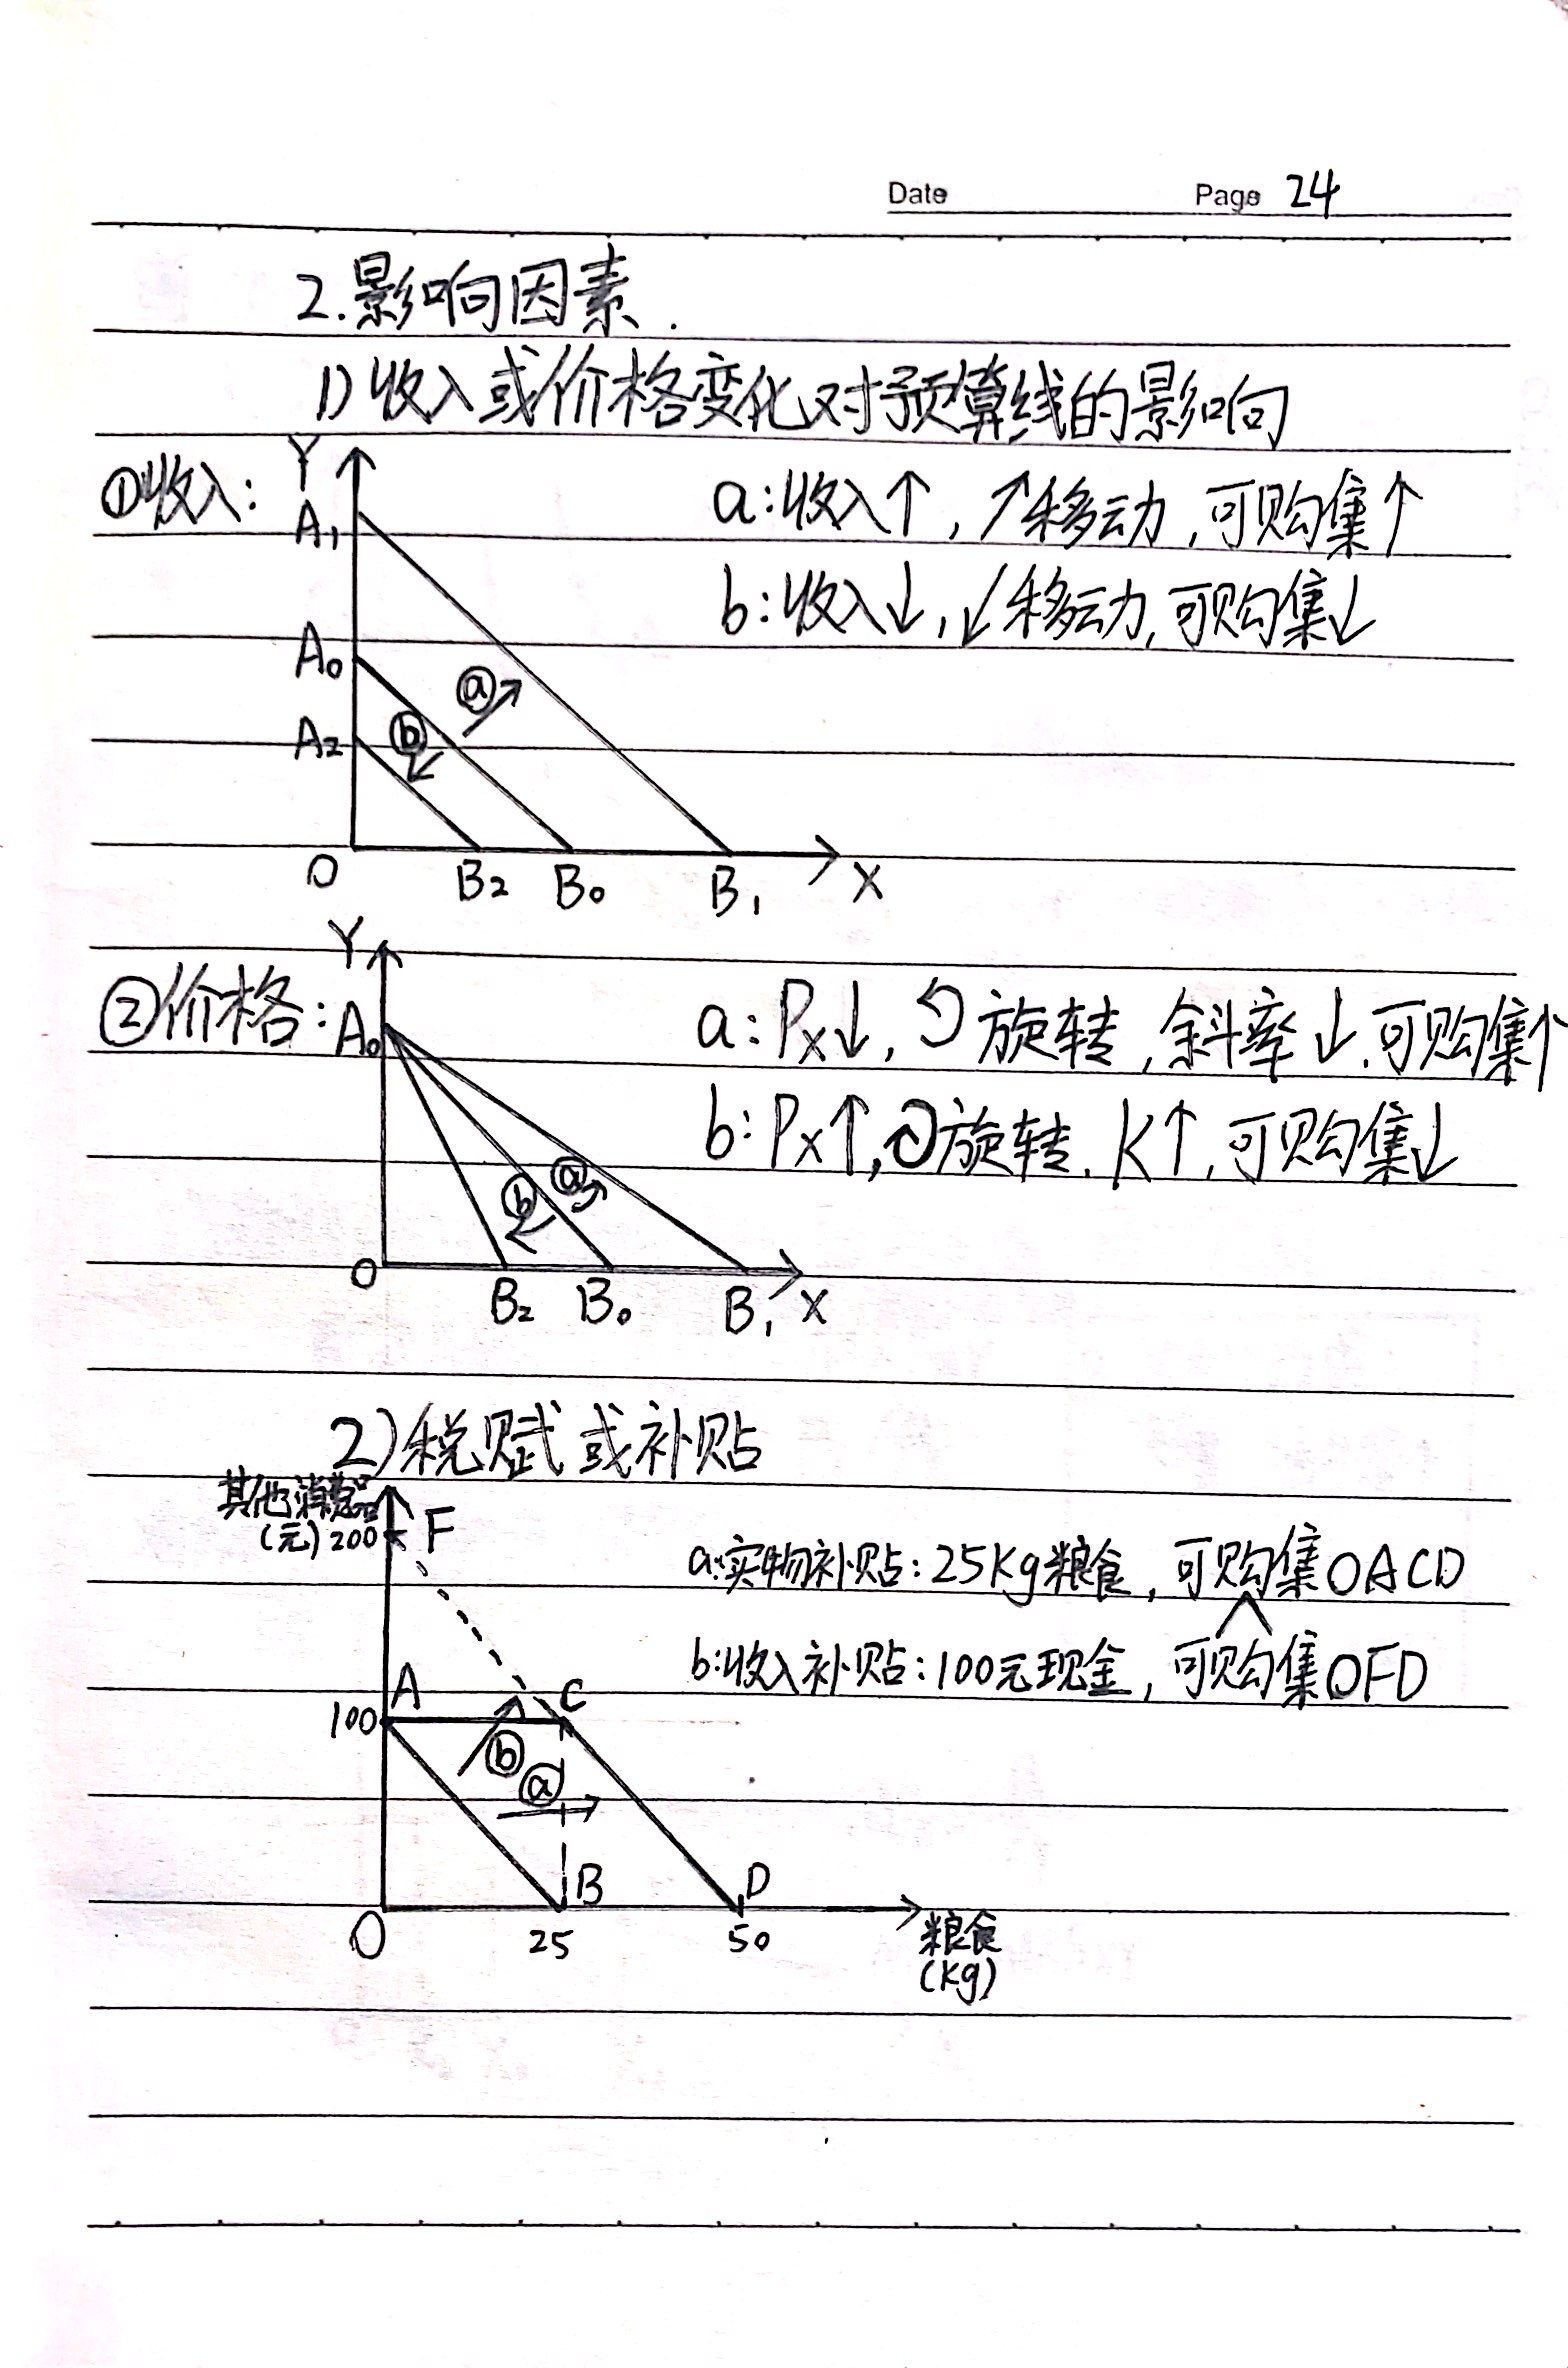 Date Page 24
2.影响因素.
1)收入或价格变化对预算线的影响
①收入:
Y
A₁
A₀
A₂
ⓐ
ⓑ
O B₂ B₀ B₁ X
a:收入↑,↗移动,可购集↑
b:收入↓,↙移动,可购集↓
②价格:
Y
A₀
ⓑ ⓐ
O B₂ B₀ B₁ X
a:Px↓,↺旋转,斜率↓.可购集↑
b:Px↑,↻旋转.K↑,可购集↓
2)税赋或补贴
其他消费品
(元)200 F
A C
100
ⓑ
ⓐ
B D
O 25 50 粮食
(Kg)
a:实物补贴:25Kg粮食,可购集OACD
∧
b:收入补贴:100元现金,可购集OFD